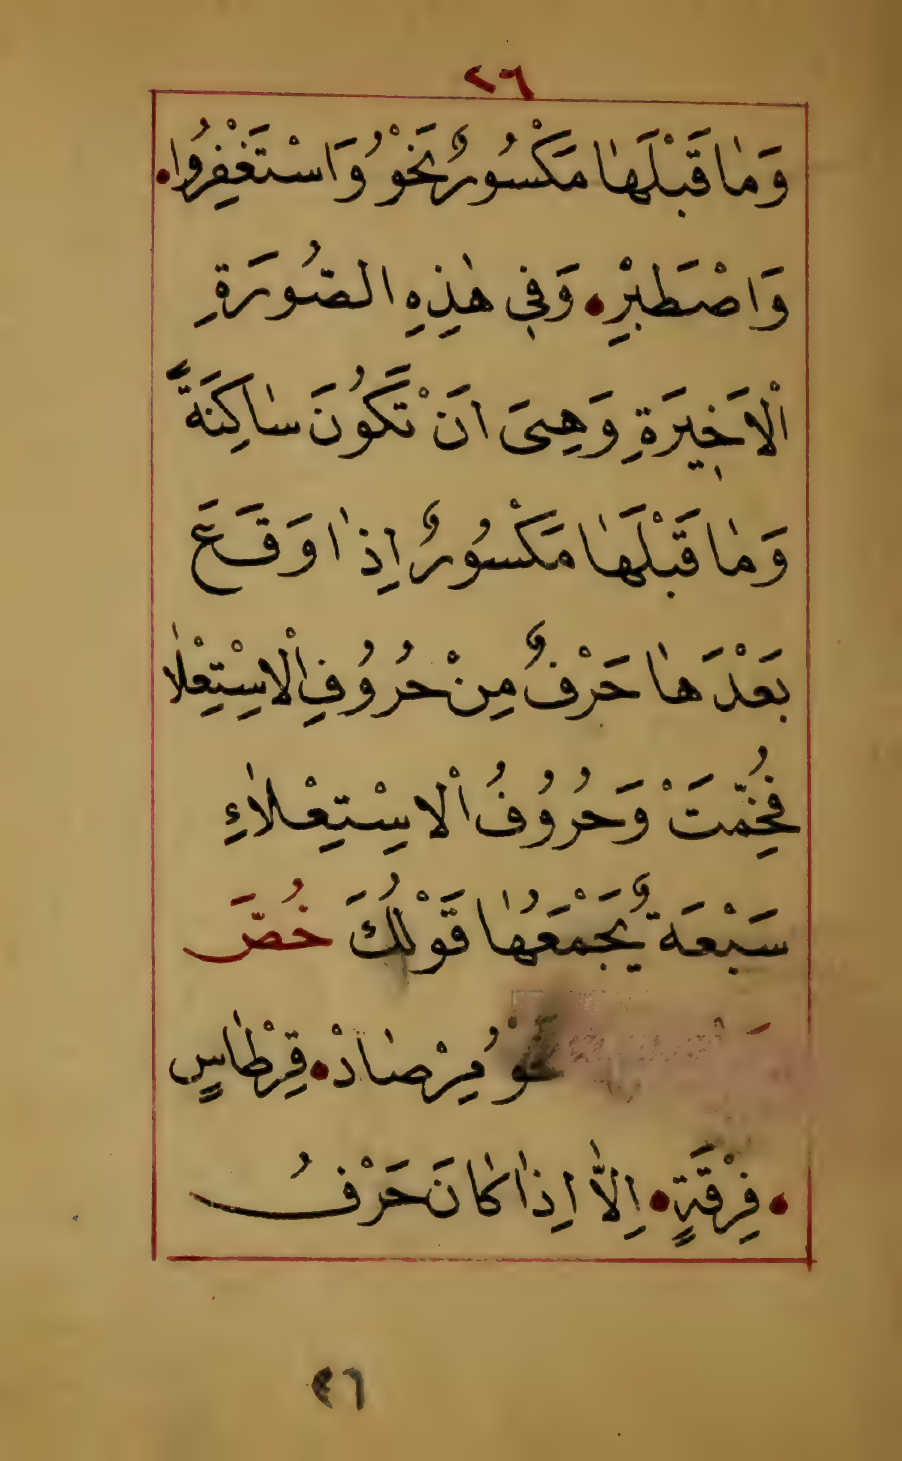 ٢٦
وَمٰا قَبْلَهٰا مَكْسُورٌ نَحْوُ وَاسْتَغْفِرُوا.
وَاصْطَبِرْ. وَفِي هٰذِهِ الصُّورَةِ
الْاَخِيرَةِ وَهِىَ اَنْ تَكُونَ سٰاكِنَةً
وَمٰا قَبْلَهٰا مَكْسُورٌ اِذٰا وَقَعَ
بَعْدَهٰا حَرْفٌ مِنْ حُرُوفِ الْاِسْتِعْلٰا
فُخِّمَتْ وَحُرُوفُ الْاِسْتِعْلٰاءِ
سَبْعَةٌ يَجْمَعُهٰا قَوْلُكَ خُصَّ
نَحْوُ مِرْصٰادْ. قِرْطٰاسٍ
. فِرْقَةٍ. اِلاّٰ اِذٰا كٰانَ حَرْفُ
٢٦